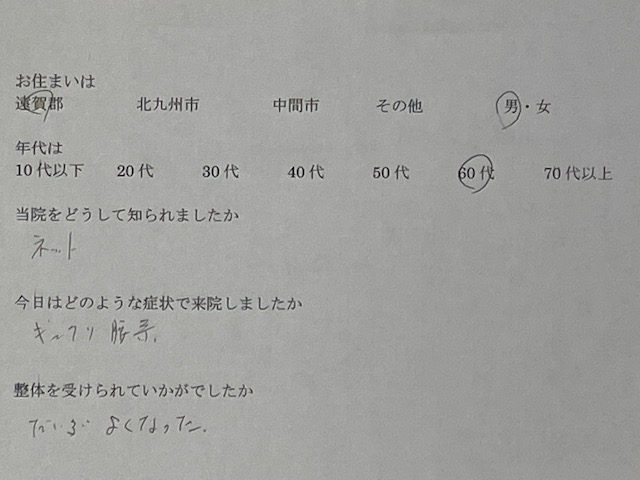 お住まいは
遠賀郡 北九州市 中間市 その他 男・女
年代は
10代以下 20代 30代 40代 50代 60代 70代以上
当院をどうして知られましたか
ネット
今日はどのような症状で来院しましたか
ギックリ腰
整体を受けられていかがでしたか
だいぶ よくなった。